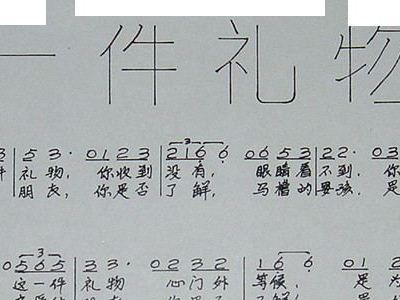 一件礼物
5 3· 0 1 2 3 2 1 6 6 0 6 5 3 2 2· 0 3
件 礼 物, 你收到 没有, 眼睛看不到, 你
朋 友, 你是否 了 解, 马槽的婴孩, 是
0 5 6 5 3 3· 0 2 3 2 1 6 6 0 1 2
这一件 礼 物 心门外 等候, 是 为